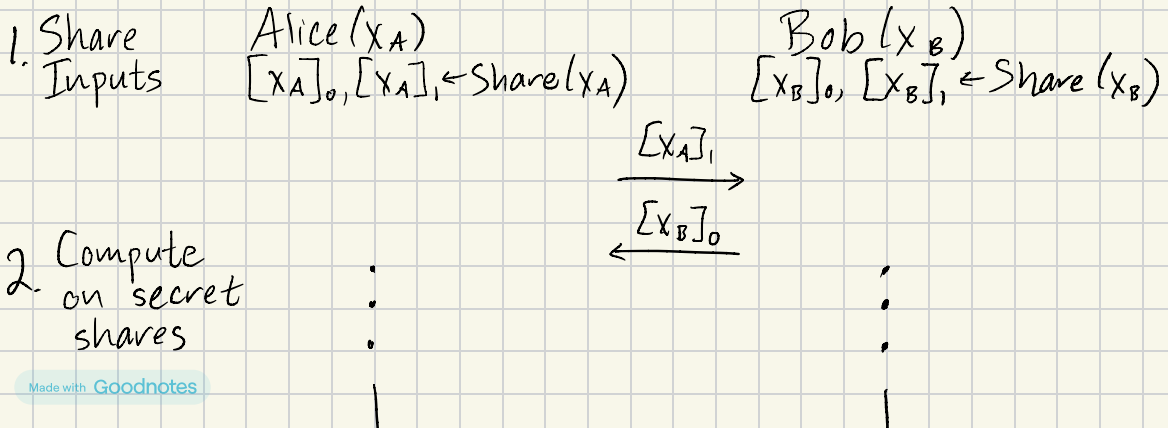 1. Share Inputs
Alice (x_A)
[x_A]_0, [x_A]_1 ← Share(x_A)
Bob (x_B)
[x_B]_0, [x_B]_1 ← Share (x_B)
[x_A]_1
[x_B]_0
2. Compute
on secret
shares
Made with Goodnotes